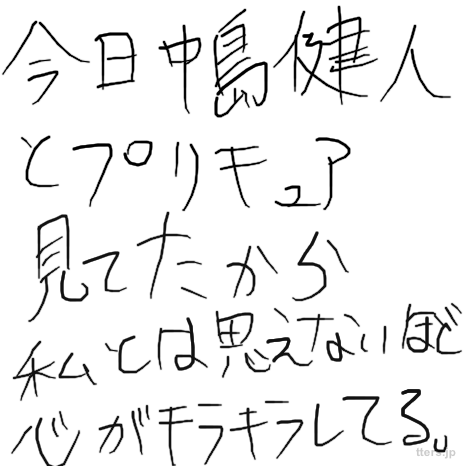 今日中島健人
とプリキュア
見てたから
私とは思えないほど
心がキラキラしてる。
tters.jp